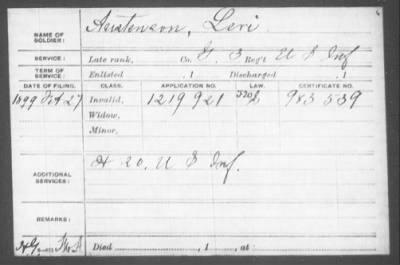 NAME OF SOLDIER: Levi
SERVICE: Late rank, Co. G 3 Reg't U S Inf
TERM OF SERVICE: Enlisted , 1 Discharged , 1
DATE OF FILING. CLASS. APPLICATION NO. LAW. CERTIFICATE NO.
1899 27 Invalid, 1219921 983539
Widow,
Minor,
ADDITIONAL SERVICES: H 20. U S Inf.
REMARKS:
Died , 1 , at